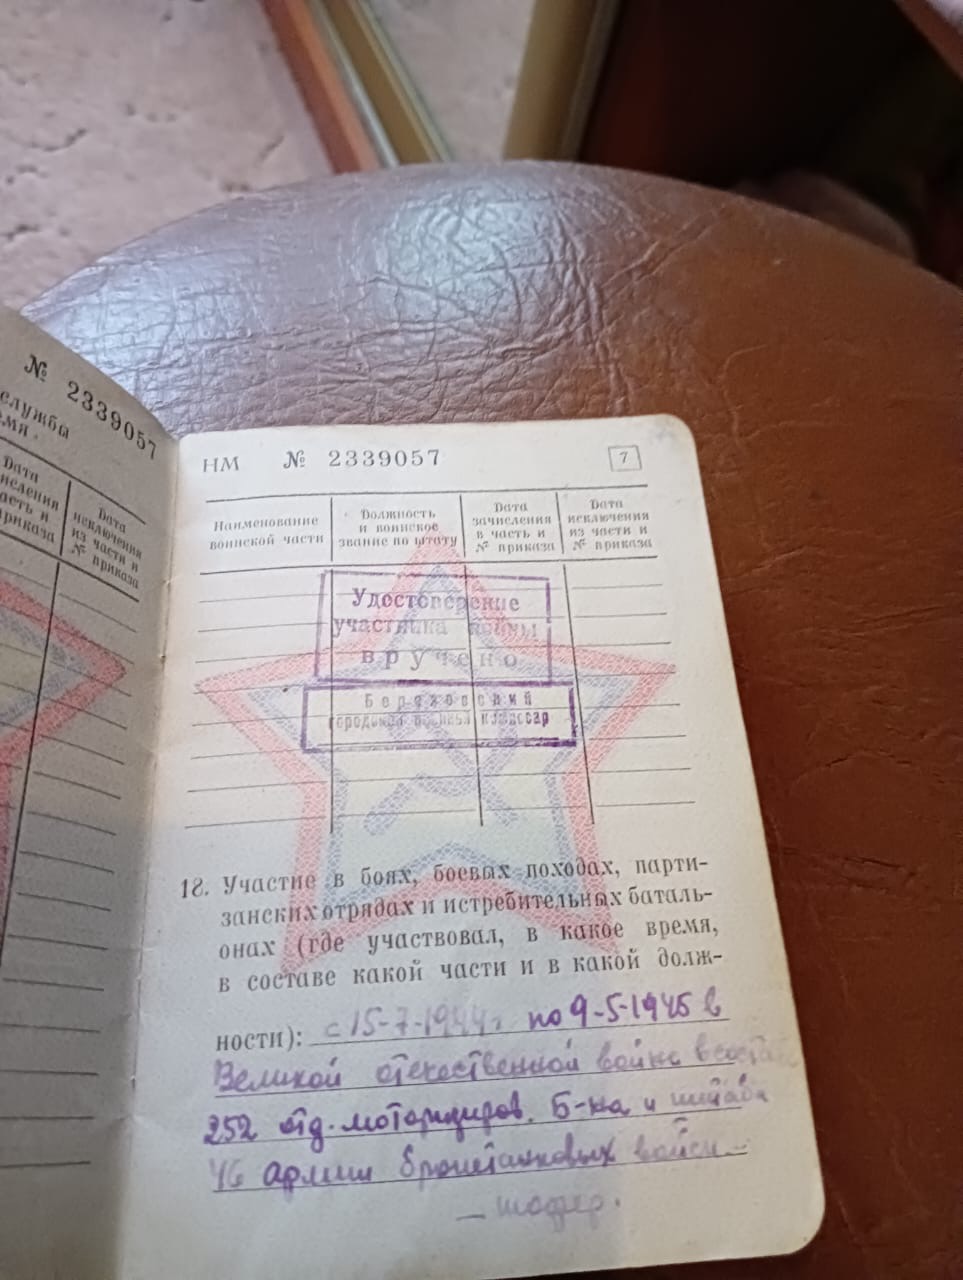 № 2339057
службы
Дата
исключения
из части и
№ приказа
НМ № 2339057 7
Наименование
воинской части
Должность
и воинское
звание по штату
Дата
зачисления
в часть и
№ приказа
Дата
исключения
из части и
№ приказа
Удостоверение
участника войны
вручено
городской военный комиссар
18. Участие в боях, боевых походах, парти-
занских отрядах и истребительных баталь-
онах (где участвовал, в какое время,
в составе какой части и в какой долж-
ности): с 15-7-1944г по 9-5-1945 в
Великой отечественной войне в
252 отд. моторизиров. б-на и штаба
46 армии бронетанковых войск –
– шофер.